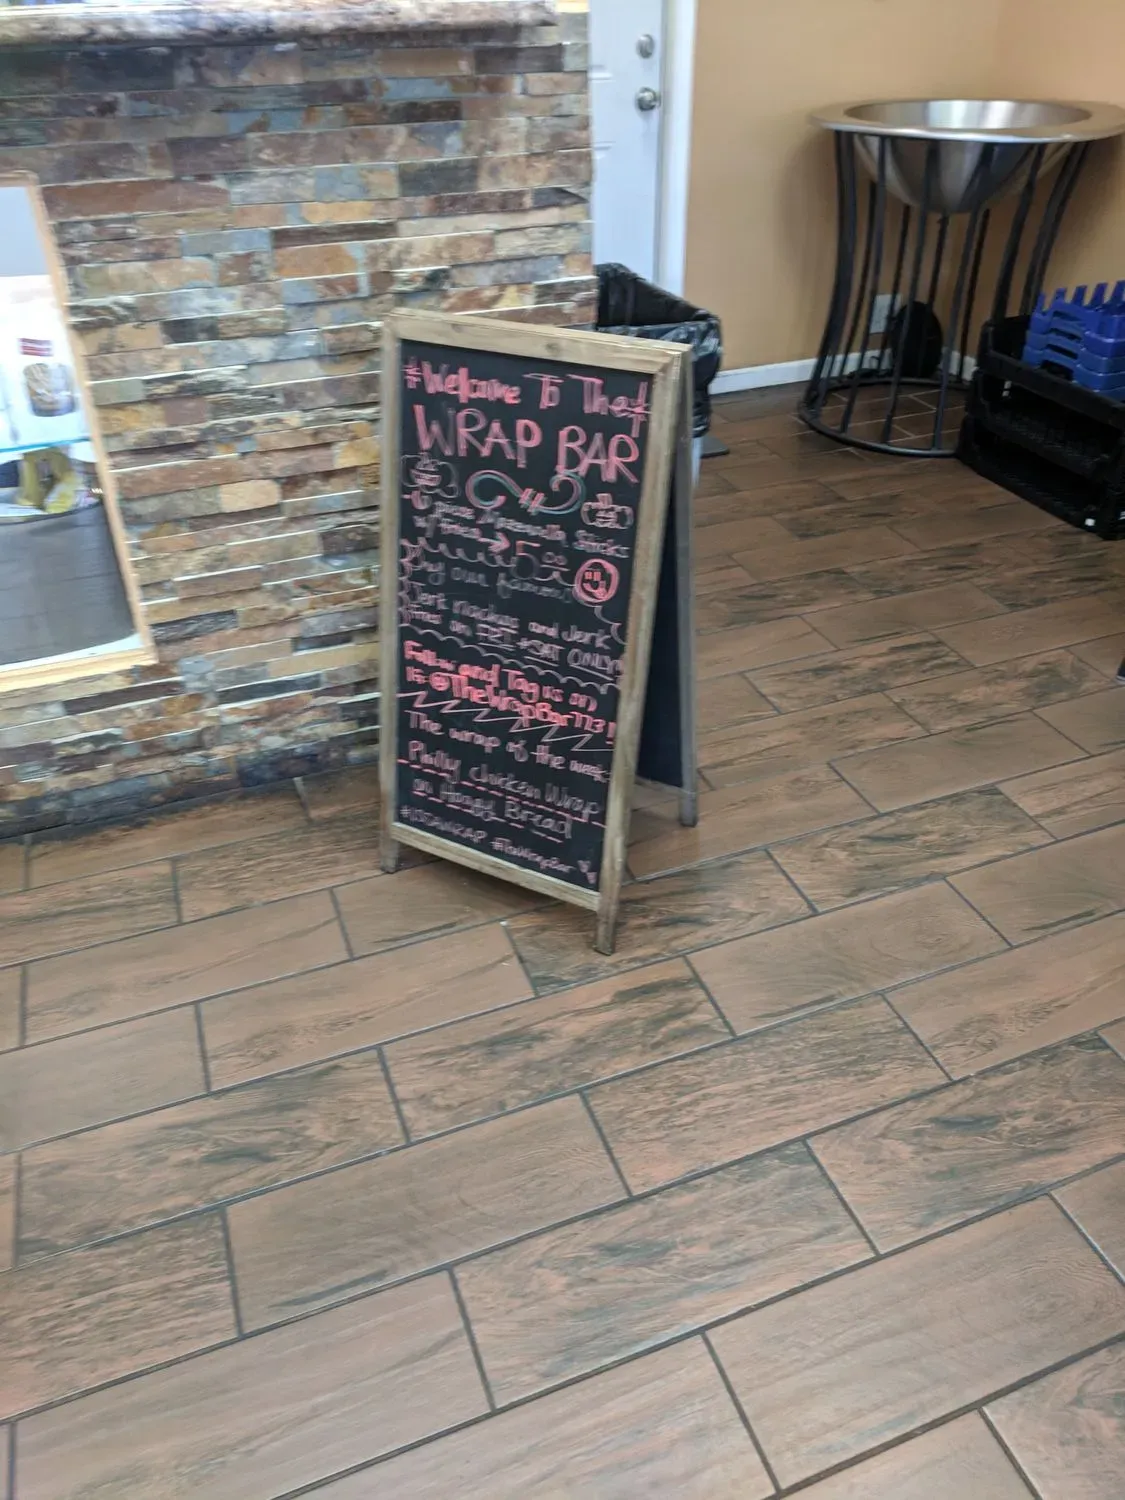 *Welcome To The*
WRAP BAR
6 piece Mozzarella Sticks
w/ fries → 5.00
Try our famous
Jerk nachos and Jerk
fries on FRI + SAT ONLY!
Follow and Tag us on
IG @TheWrapBar773!!
The wrap of the week
Philly chicken Wrap
on Hoagy Bread
#ISSAWRAP #TheWrapBar